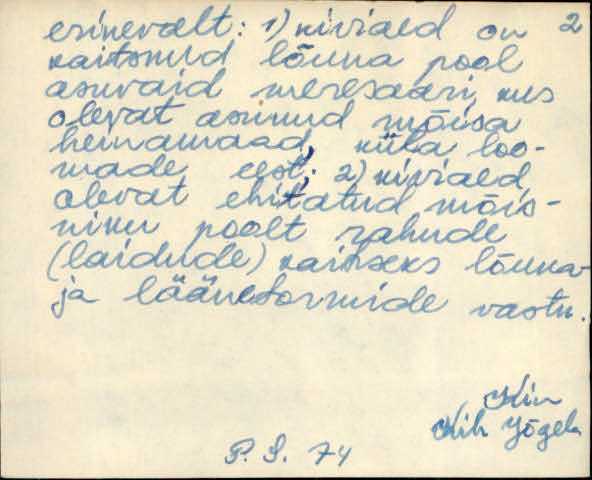 2
erinevalt: 1) kiviaed on
kaitsnud lõuna pool
asuvaid meresaari, kus
olevat asunud mõisa
heinamaad, küla loo-
made eest; 2) kiviaed
olevat ehitatud mõis-
niku poolt rahude
(laidude) kaitseks lõuna-
ja läänetormide vastu.
Kin
Kih Jõgela
P. S. 74